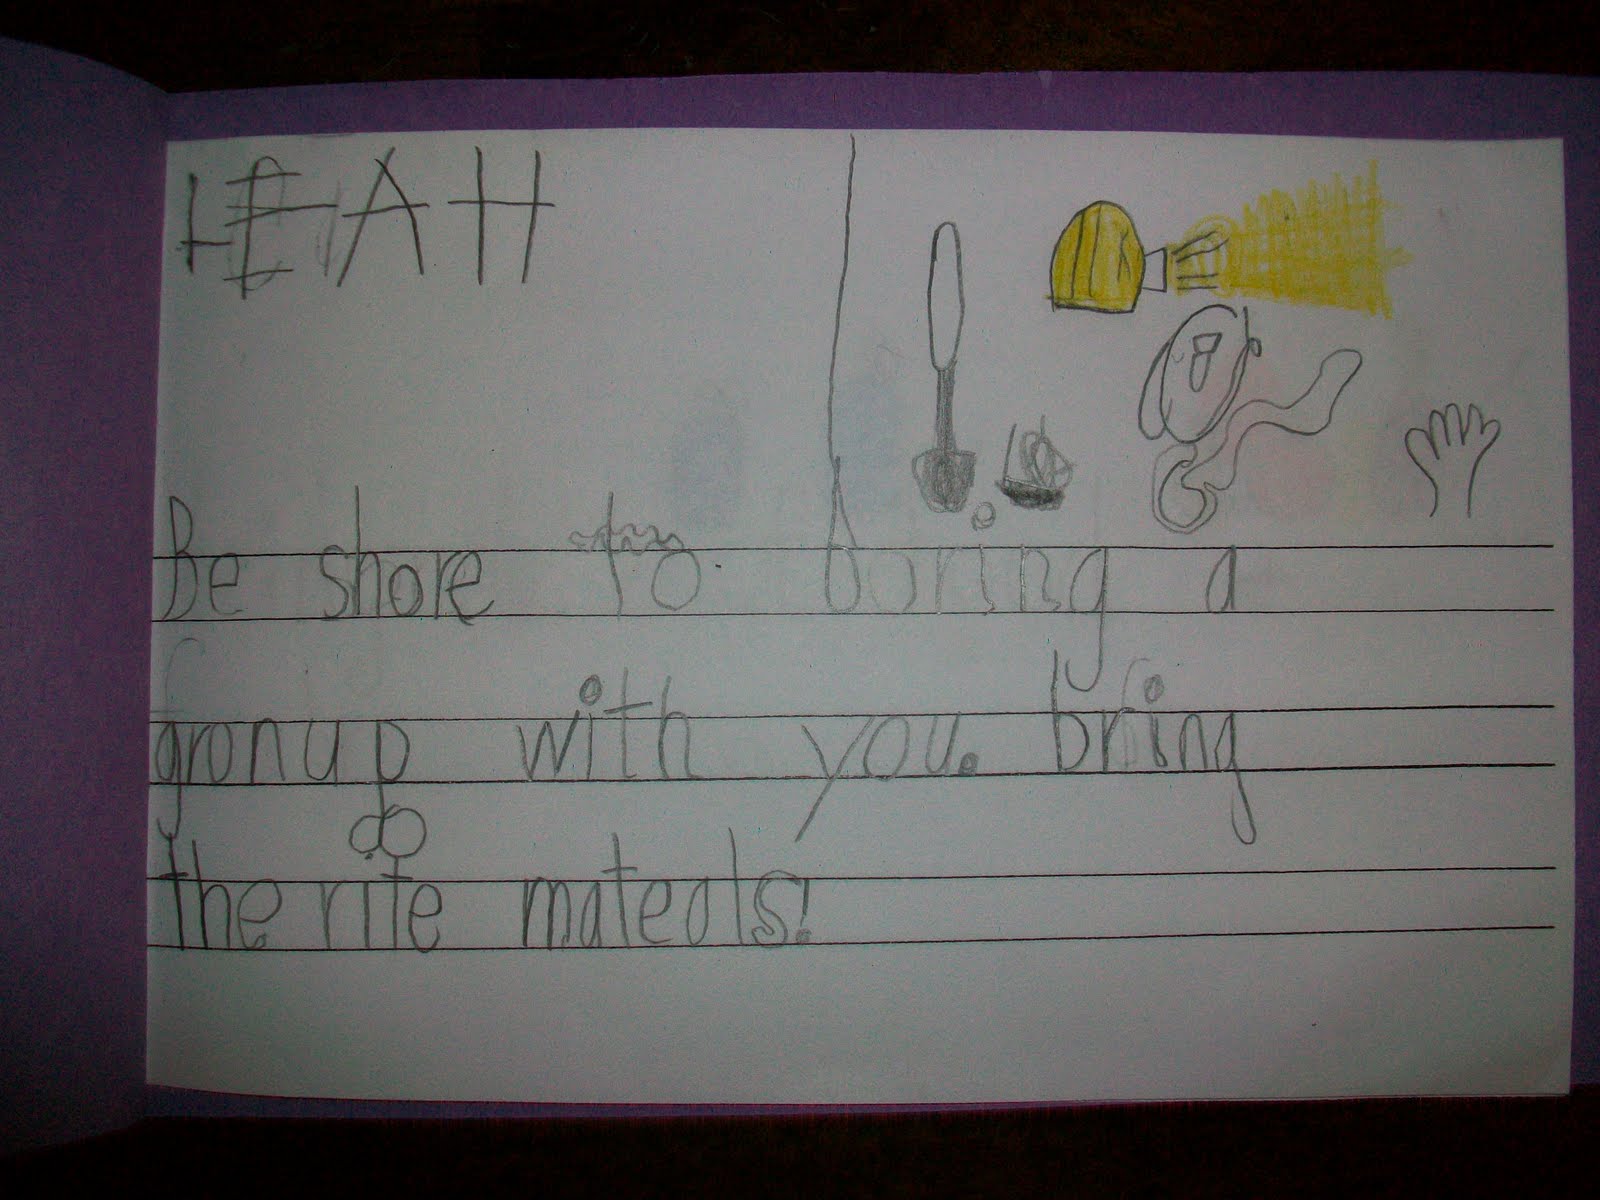 LEAH
Be shore to boring a
gronup with you. bring
the rite mateals!